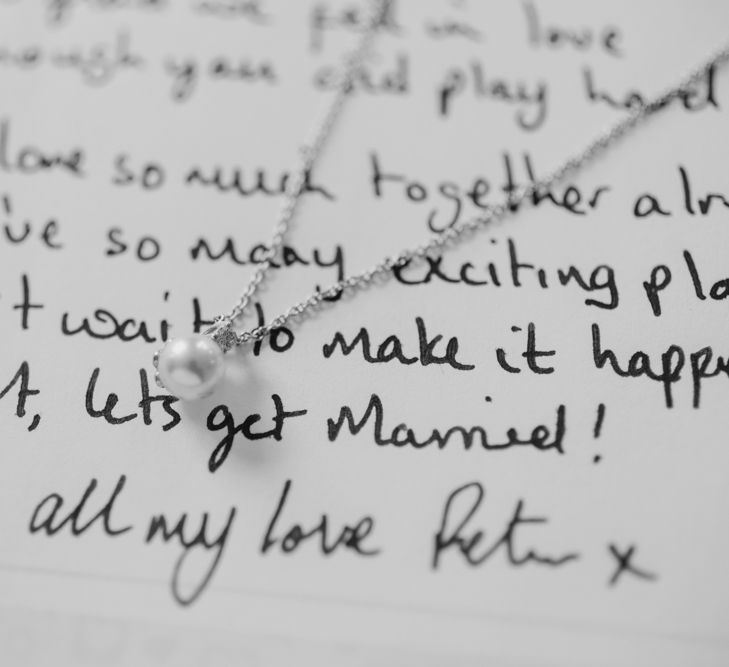 we fell in love
though you and play hard
done so much together alr
've so many exciting pla
't wait to make it happe
t, lets get Married!
all my love Peter x